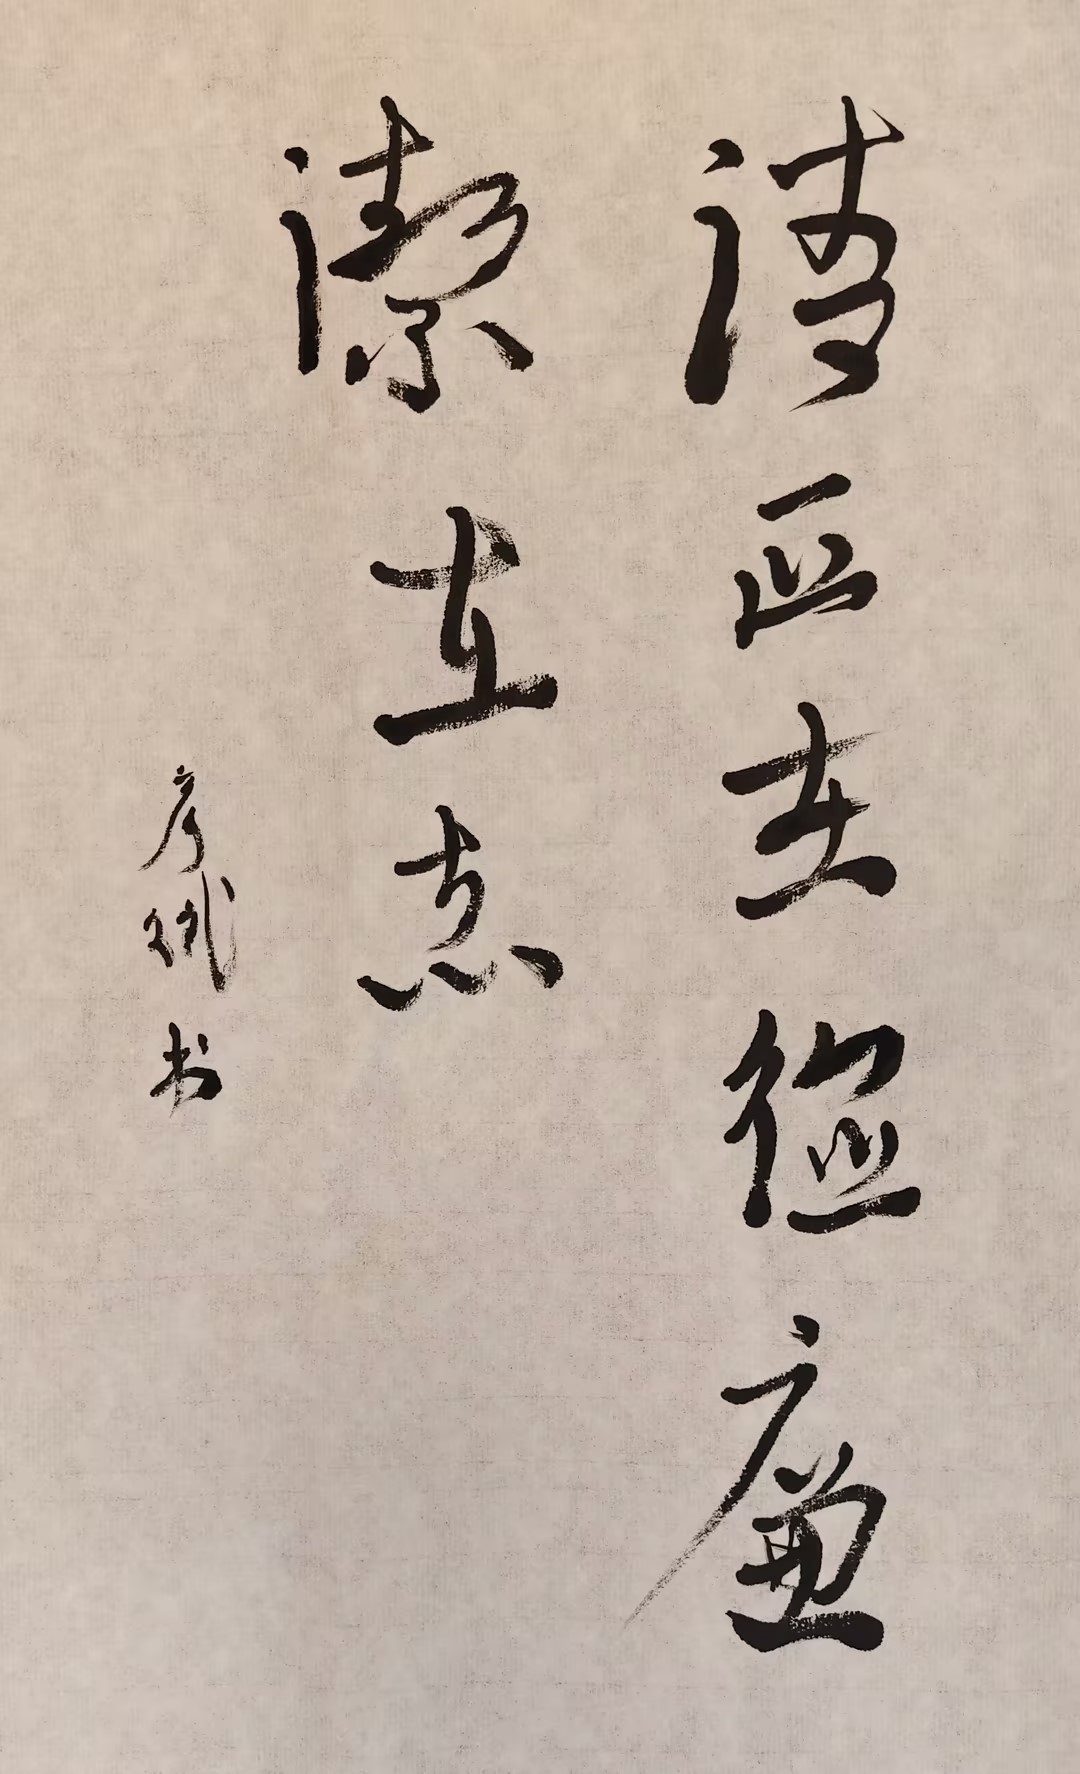 清正在德廉
潔在志
彦斌书